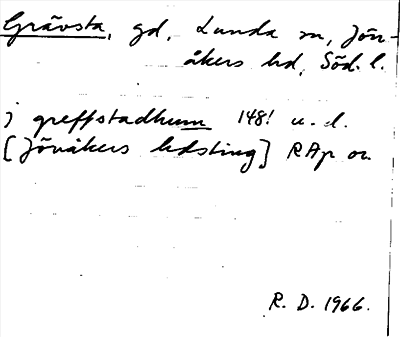 Grävsta, gd, Lunda sn, Jön-
åkers hd, Söd. l.
j greffstadhum 1481 u. d.
[Jönåkers hdsting] RAp or.
R. D. 1966.